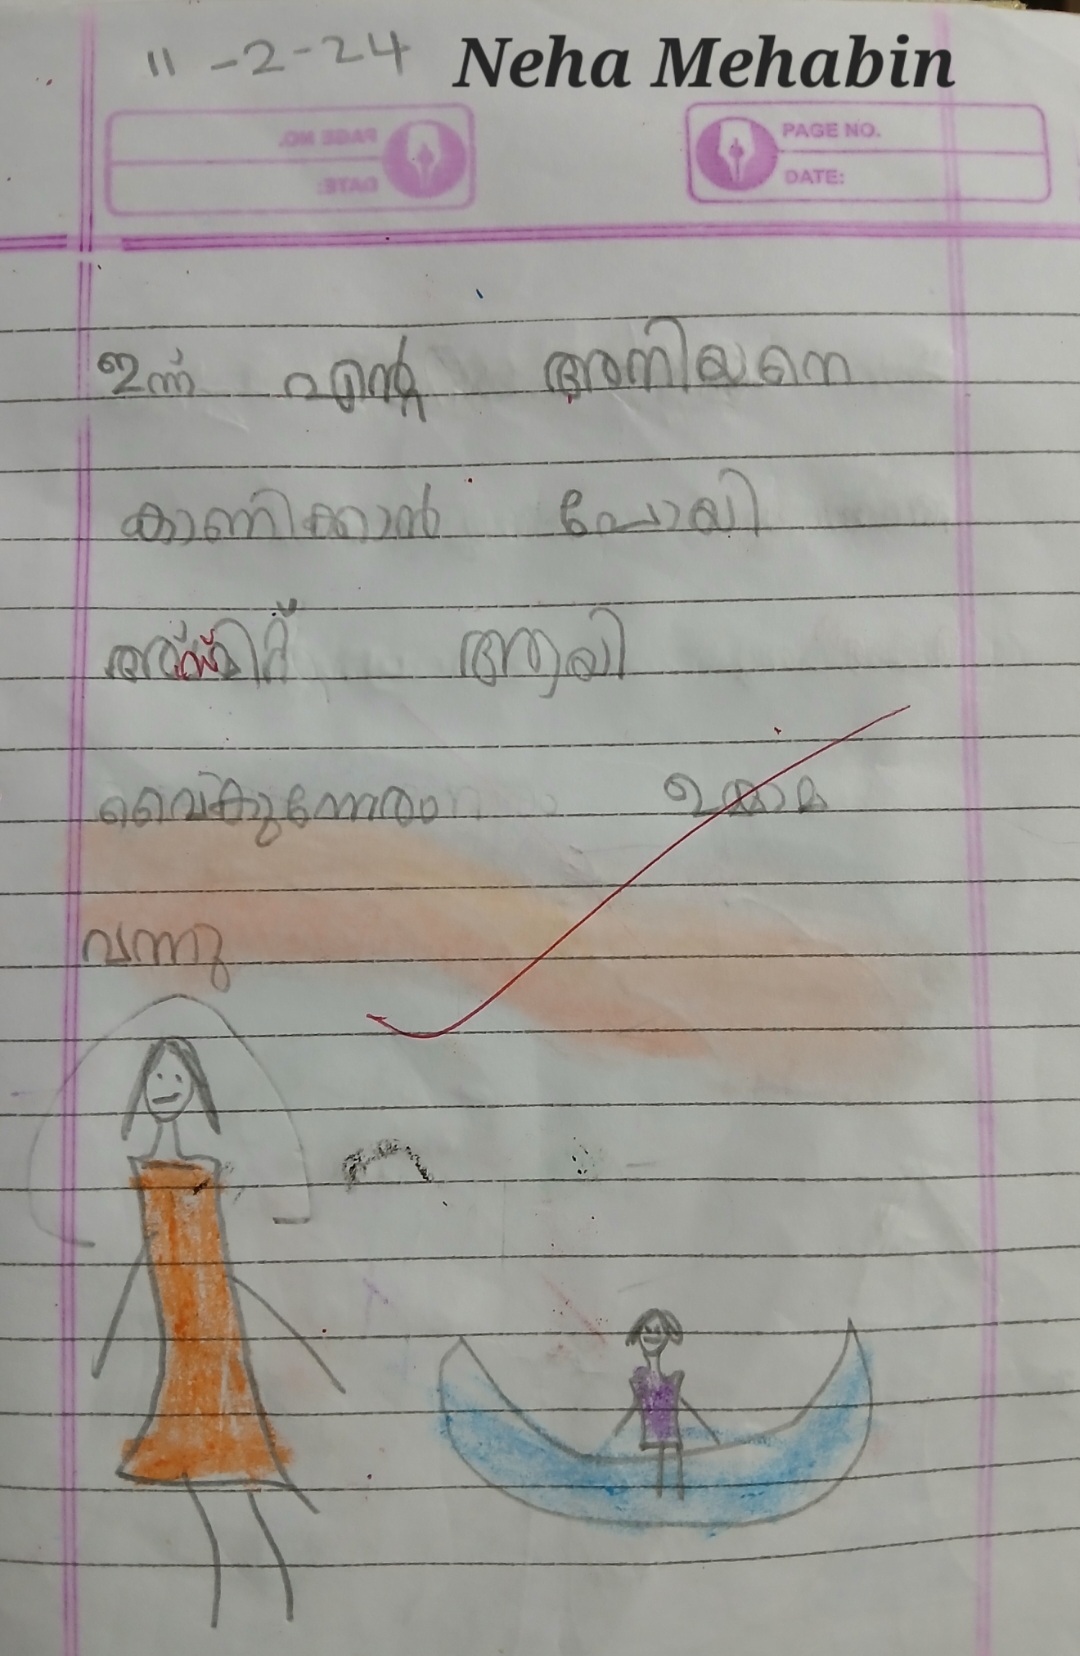 11-2-24 Neha Mehabin
PAGE NO.
DATE:
ഇന്ന് എന്റെ അനിയനെ
കാണിക്കാൻ പോയി
ആയി
വൈകുന്നേരം ഉമ്മ
വന്നു